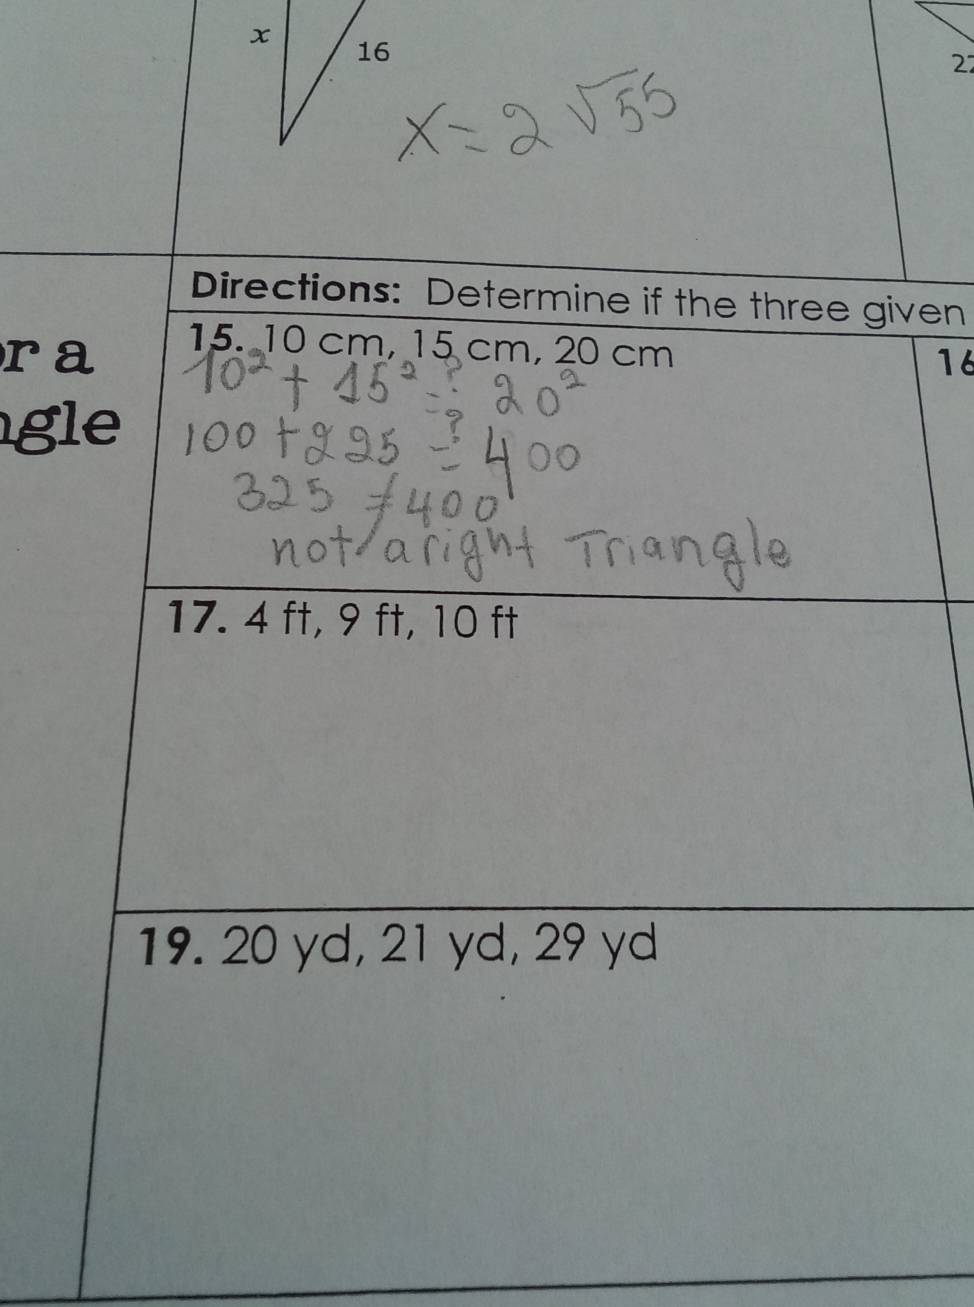 x
16
x = 2 √55
Directions: Determine if the three given
r a
gle
15. 10 cm, 15 cm, 20 cm
10² + 15² =? 20²
100 + 225 =? 400
325 ≠ 400
not a right Triangle
17. 4 ft, 9 ft, 10 ft
19. 20 yd, 21 yd, 29 yd